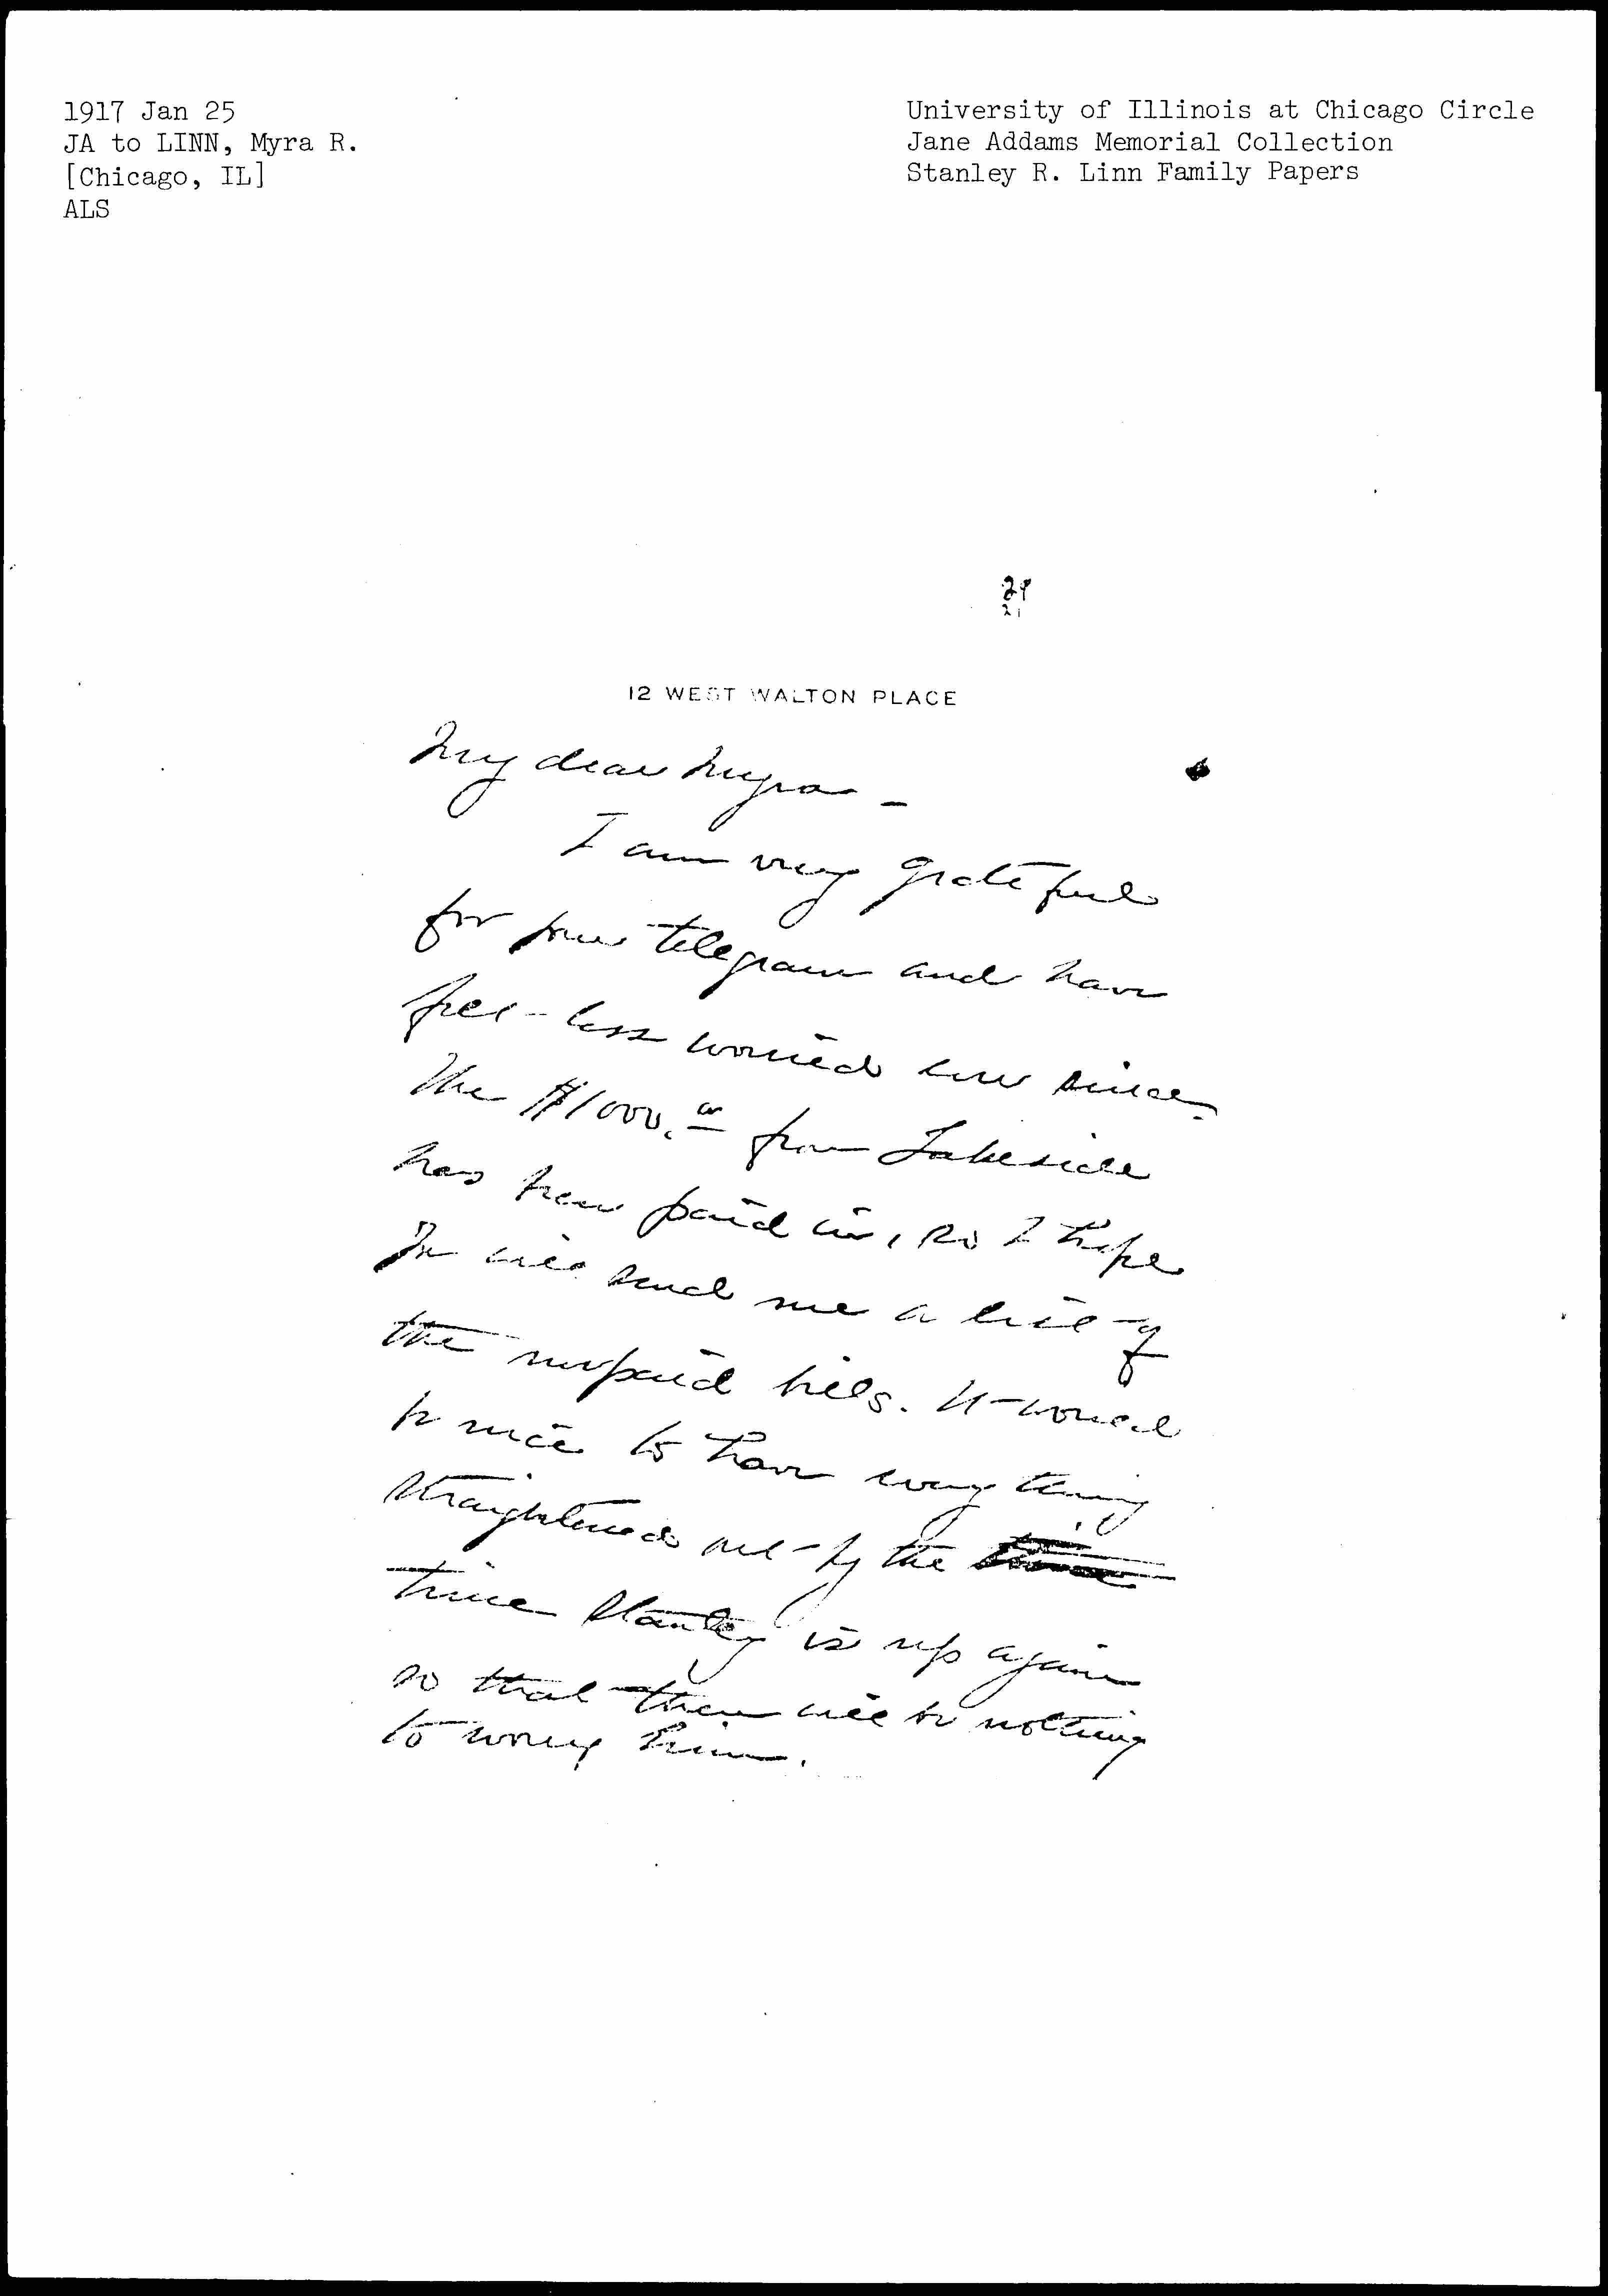 1917 Jan 25
JA to LINN, Myra R.
[Chicago, IL]
ALS
University of Illinois at Chicago Circle
Jane Addams Memorial Collection
Stanley R. Linn Family Papers
12 WEST WALTON PLACE
My dear Myra -
I am very grateful
for your telegram and have
feel less worried ever since.
The $1000.00 from Lakeside
has been paid in, so I hope
you will send me a list of
the unpaid bills. It would
be nice to have every thing
straightened out by the
time Stanley is up again
so that there will be nothing
to worry him.